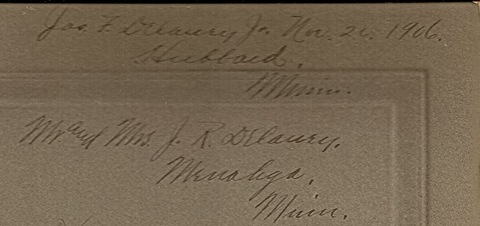 Jas F. DeLaurey Jr. Nov. 21. 1906.
Hubbard.
Minn.
Mr and Mrs. J. R. DeLaurey.
Menahga.
Minn.